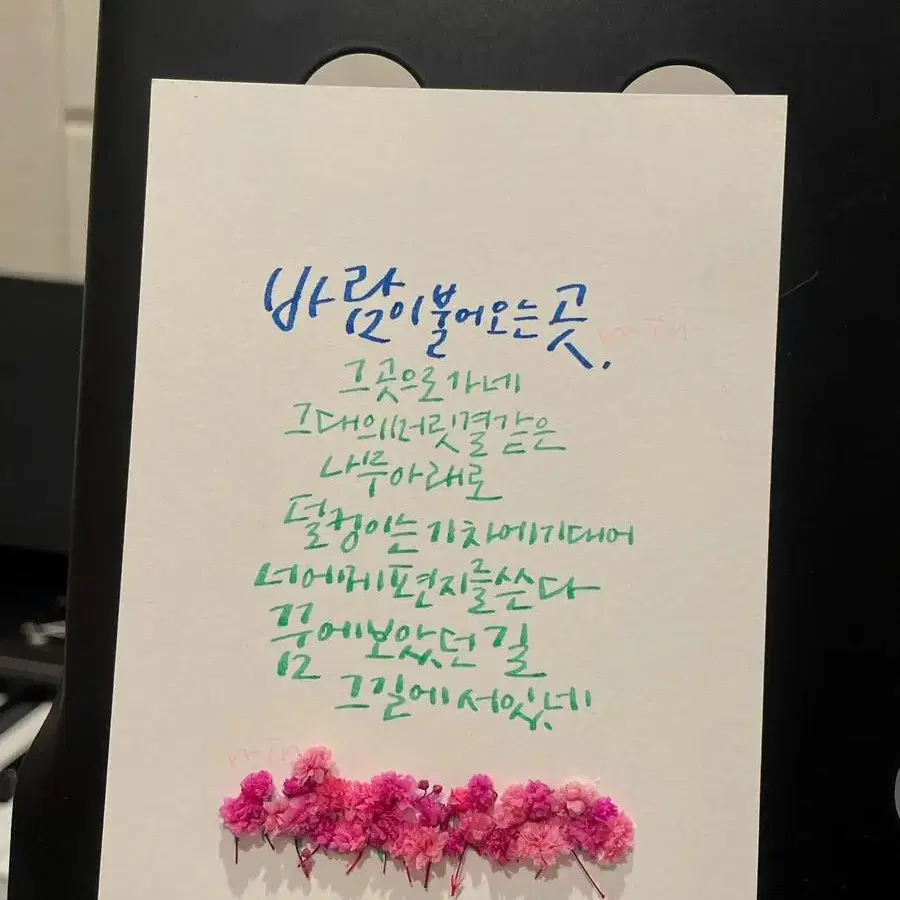 바람이 불어오는 곳.
그곳으로 가네
그대의 머릿결 같은
나무 아래로
덜컹이는 기차에 기대어
너에게 편지를 쓴다
꿈에 보았던 길
그 길에 서있네